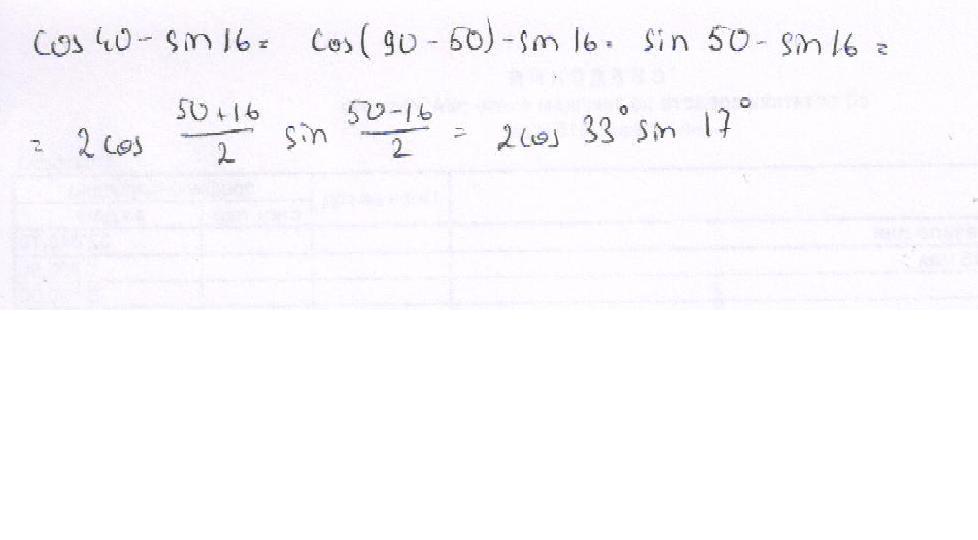 cos 40 - sin 16 = cos(90 - 50) - sin 16 = sin 50 - sin 16 =
= 2 cos (50+16)/2 sin (50-16)/2 = 2 cos 33° sin 17°